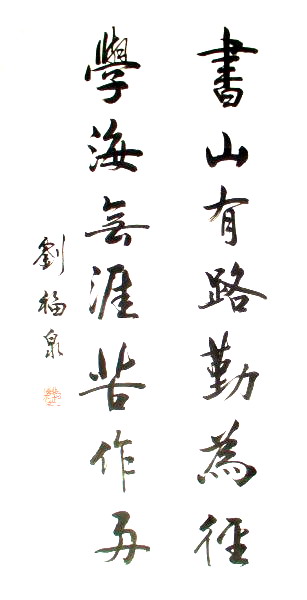 書山有路勤為徑
學海無涯苦作舟
劉福泉